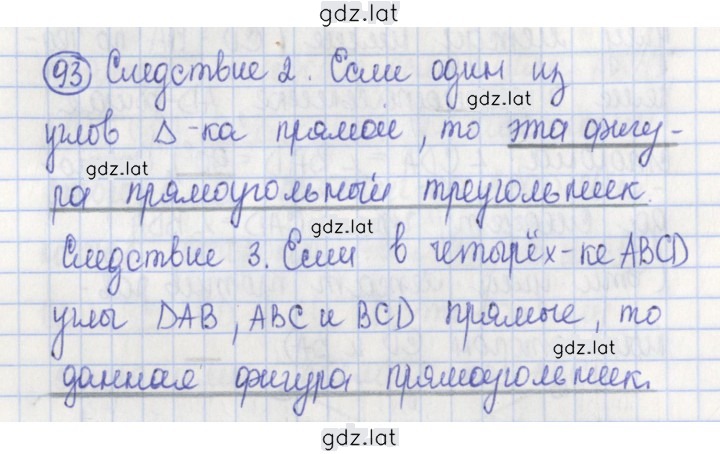 gdz.lat
93 Следствие 2. Если один из
gdz.lat
углов Δ-ка прямой, то эта фигу-
gdz.lat
ра прямоугольный треугольник.
gdz.lat
Следствие 3. Если в четырёх-ке ABCD
углы DAB, ABC и BCD прямые, то
gdz.lat
данная фигура прямоугольник.
gdz.lat